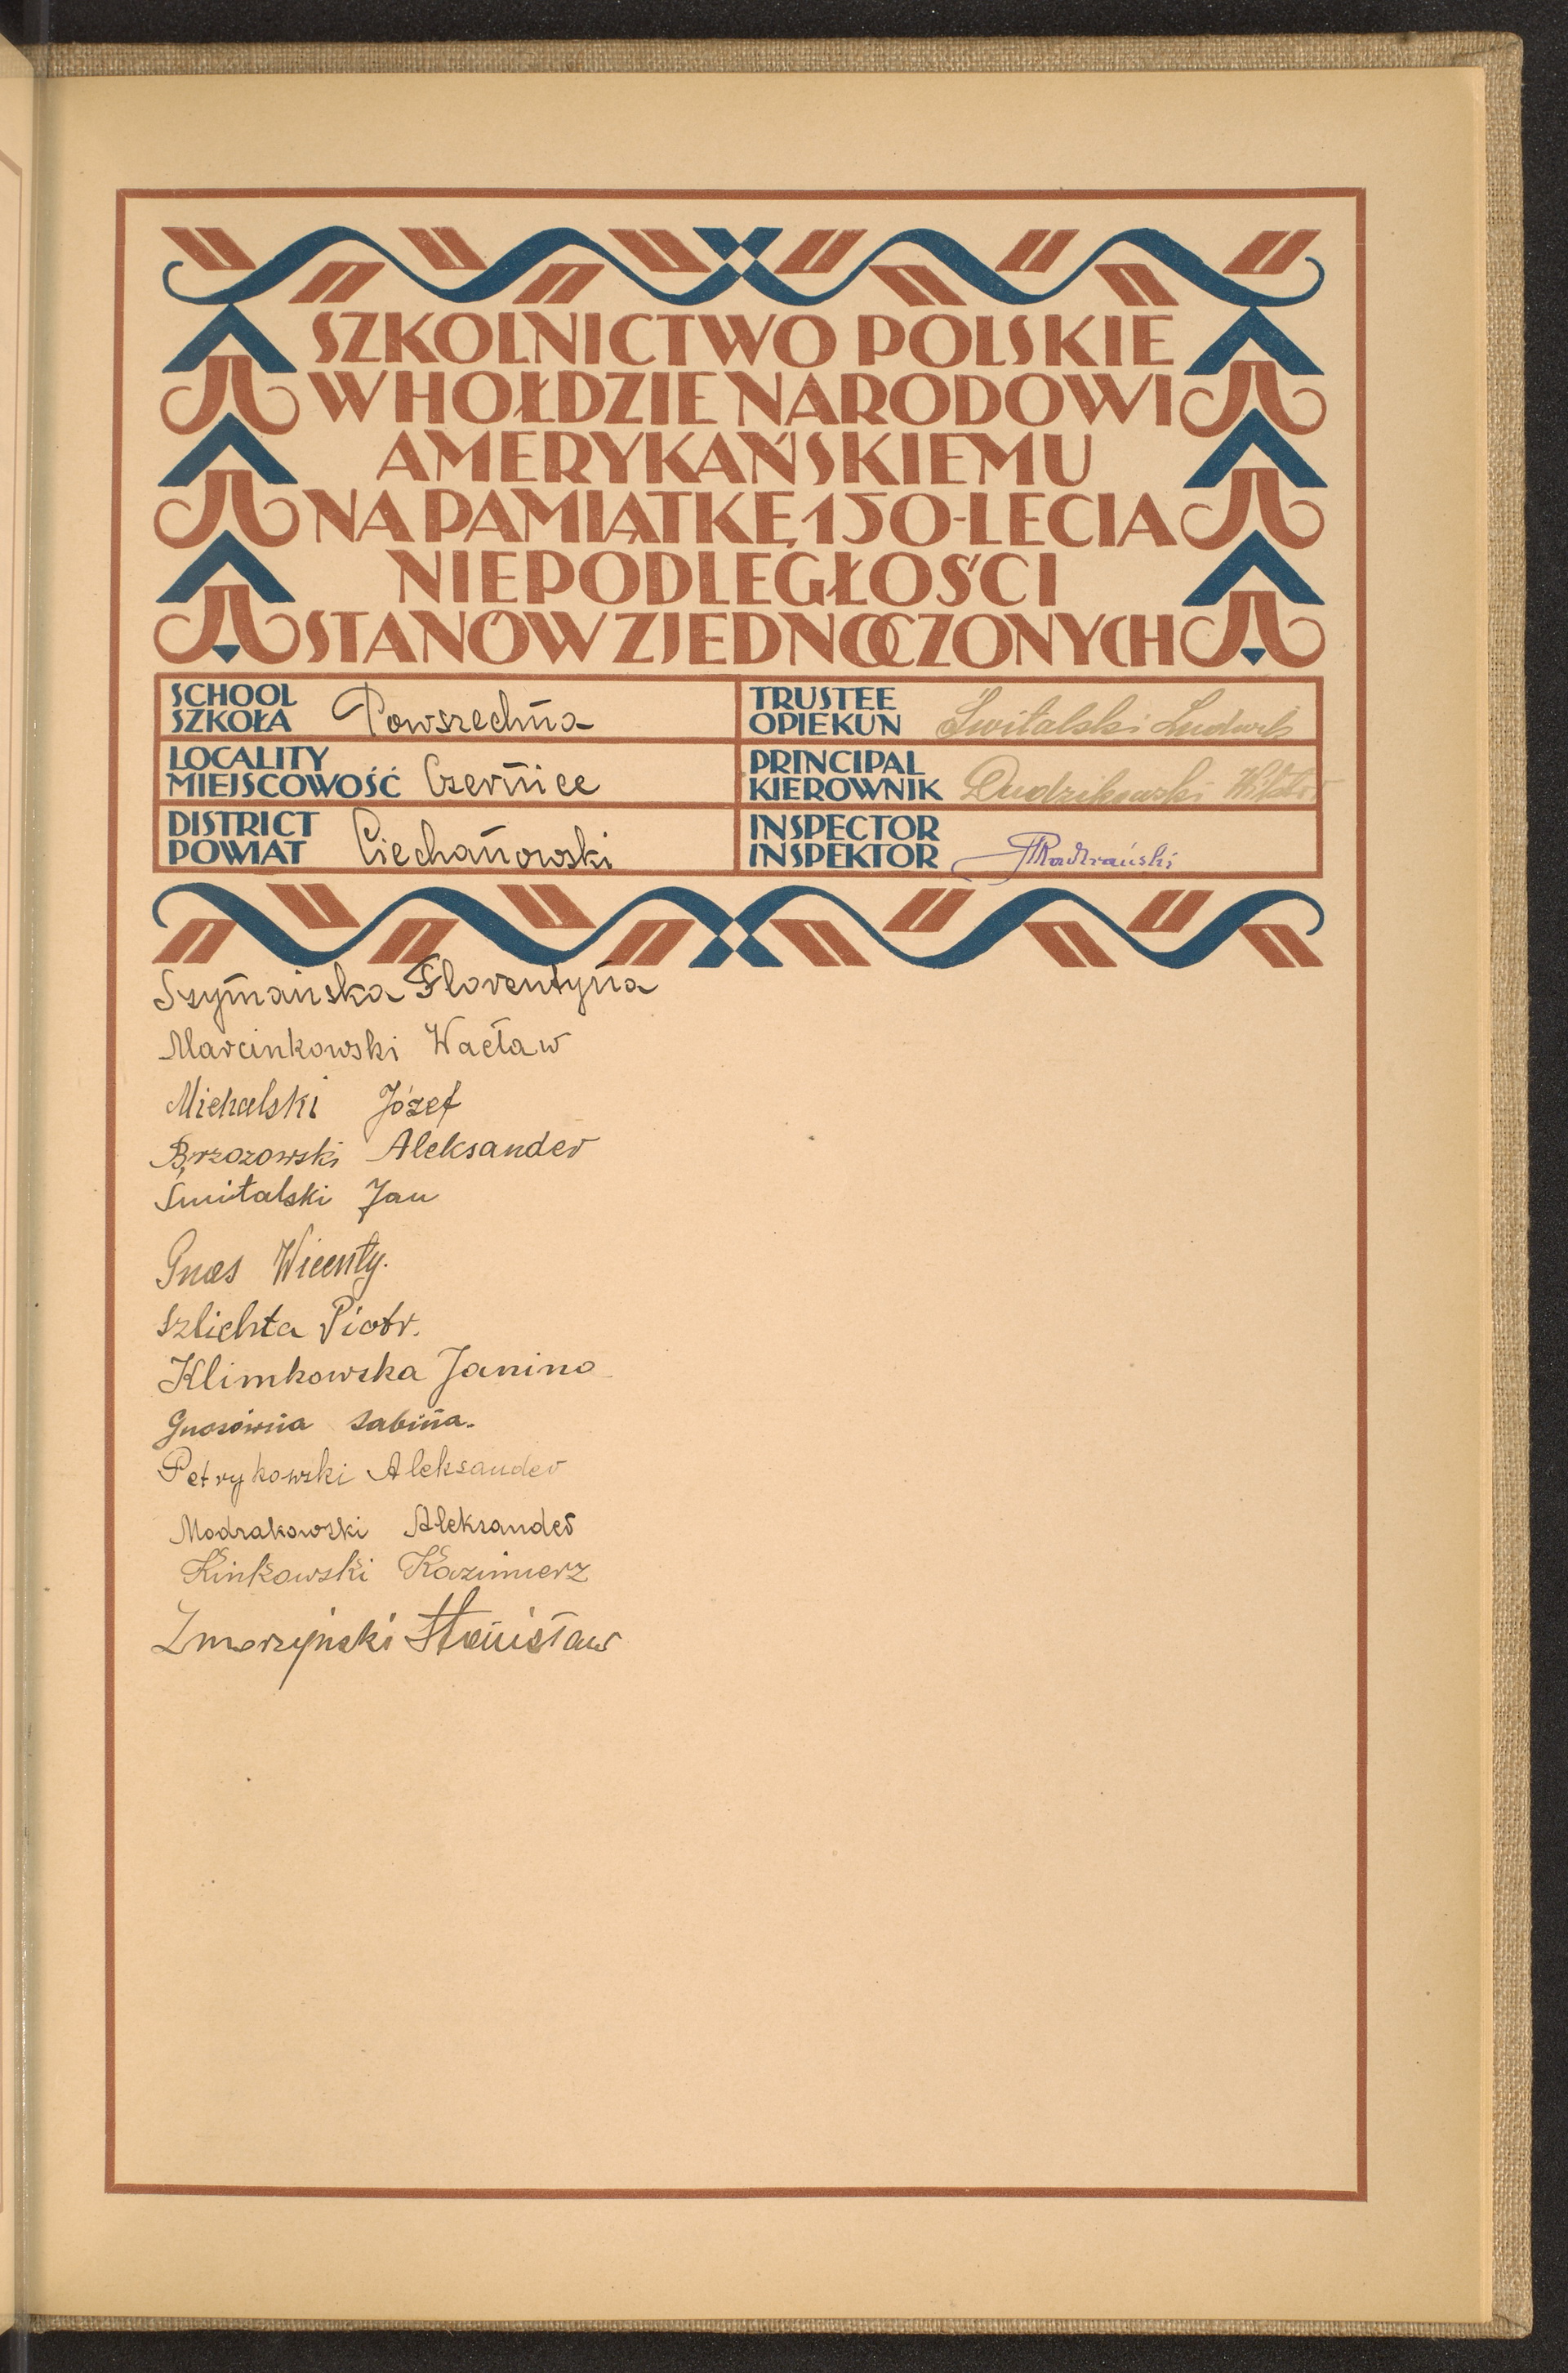 SZKOLNICTWO POLSKIE
W HOŁDZIE NARODOWI
AMERYKAŃSKIEMU
NA PAMIĄTKĘ 150-LECIA
NIEPODLEGŁOŚCI
STANÓW ZJEDNOCZONYCH
SCHOOL
SZKOŁA Powszechna
TRUSTEE
OPIEKUN Świtalski Ludwik
LOCALITY
MIEJSCOWOŚĆ Czernice
PRINCIPAL
KIEROWNIK Dudzikowski Wiktor
DISTRICT
POWIAT Ciechanowski
INSPECTOR
INSPEKTOR
Szymańska Florentyna
Marcinkowski Wacław
Michalski Józef
Brzozowski Aleksander
Świtalski Jan
Gnas Wicenty.
Szlichta Piotr.
Klimkowska Janina
Gnosówna Sabina.
Petrykowski Aleksander
Modrakowski Aleksander
Kinkowski Kazimierz
Zmorzyński Stanisław